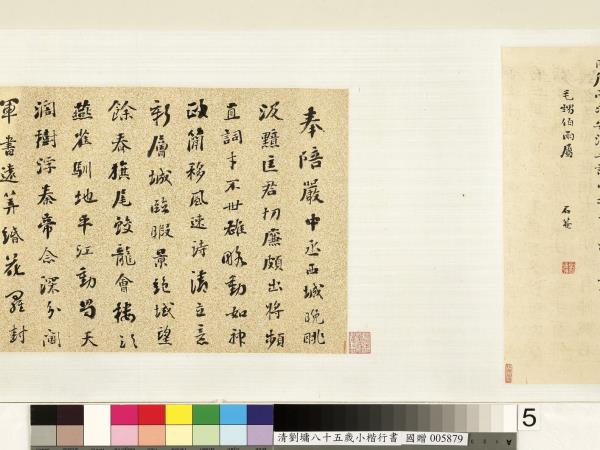 石菴
奉陪嚴中丞西城晚眺
汲黯匡君切廉頗出將頻
直詞才不世雄略動如神
政簡移風速詩清立意
新層城臨暇景絕域望
餘春旗尾蛟龍會樓頭
燕雀馴地平江動蜀天
闊樹浮秦帝念深分閫
軍書遠算緡花羅封
5
清劉墉八十五歲小楷行書 國贈 005879